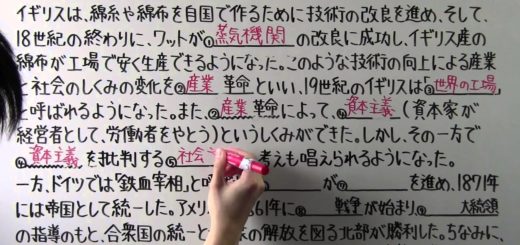 イギリスは、綿糸や綿布を自国で作るために技術の改良を進め、そして、
18世紀の終わりに、ワットが①蒸気機関の改良に成功し、イギリス産の
綿布が工場で安く生産できるようになった。このような技術の向上による産業
と社会のしくみの変化を②産業革命といい、19世紀のイギリスは「③世界の工場」
と呼ばれるようになった。また、②産業革命によって、④資本主義(資本家が
経営者として、労働者をやとう)というしくみができた。しかし、その一方で
④資本主義を批判する⑤社会 考えも唱えられるようになった。
一方、ドイツでは「鉄血宰相」と が を進め、1871年
には帝国として統一した。アメリ 61年に 戦争が始まり、 大統領
の指導のもと、合衆国の統一と の解放を図る北部が勝利した。ちなみに、